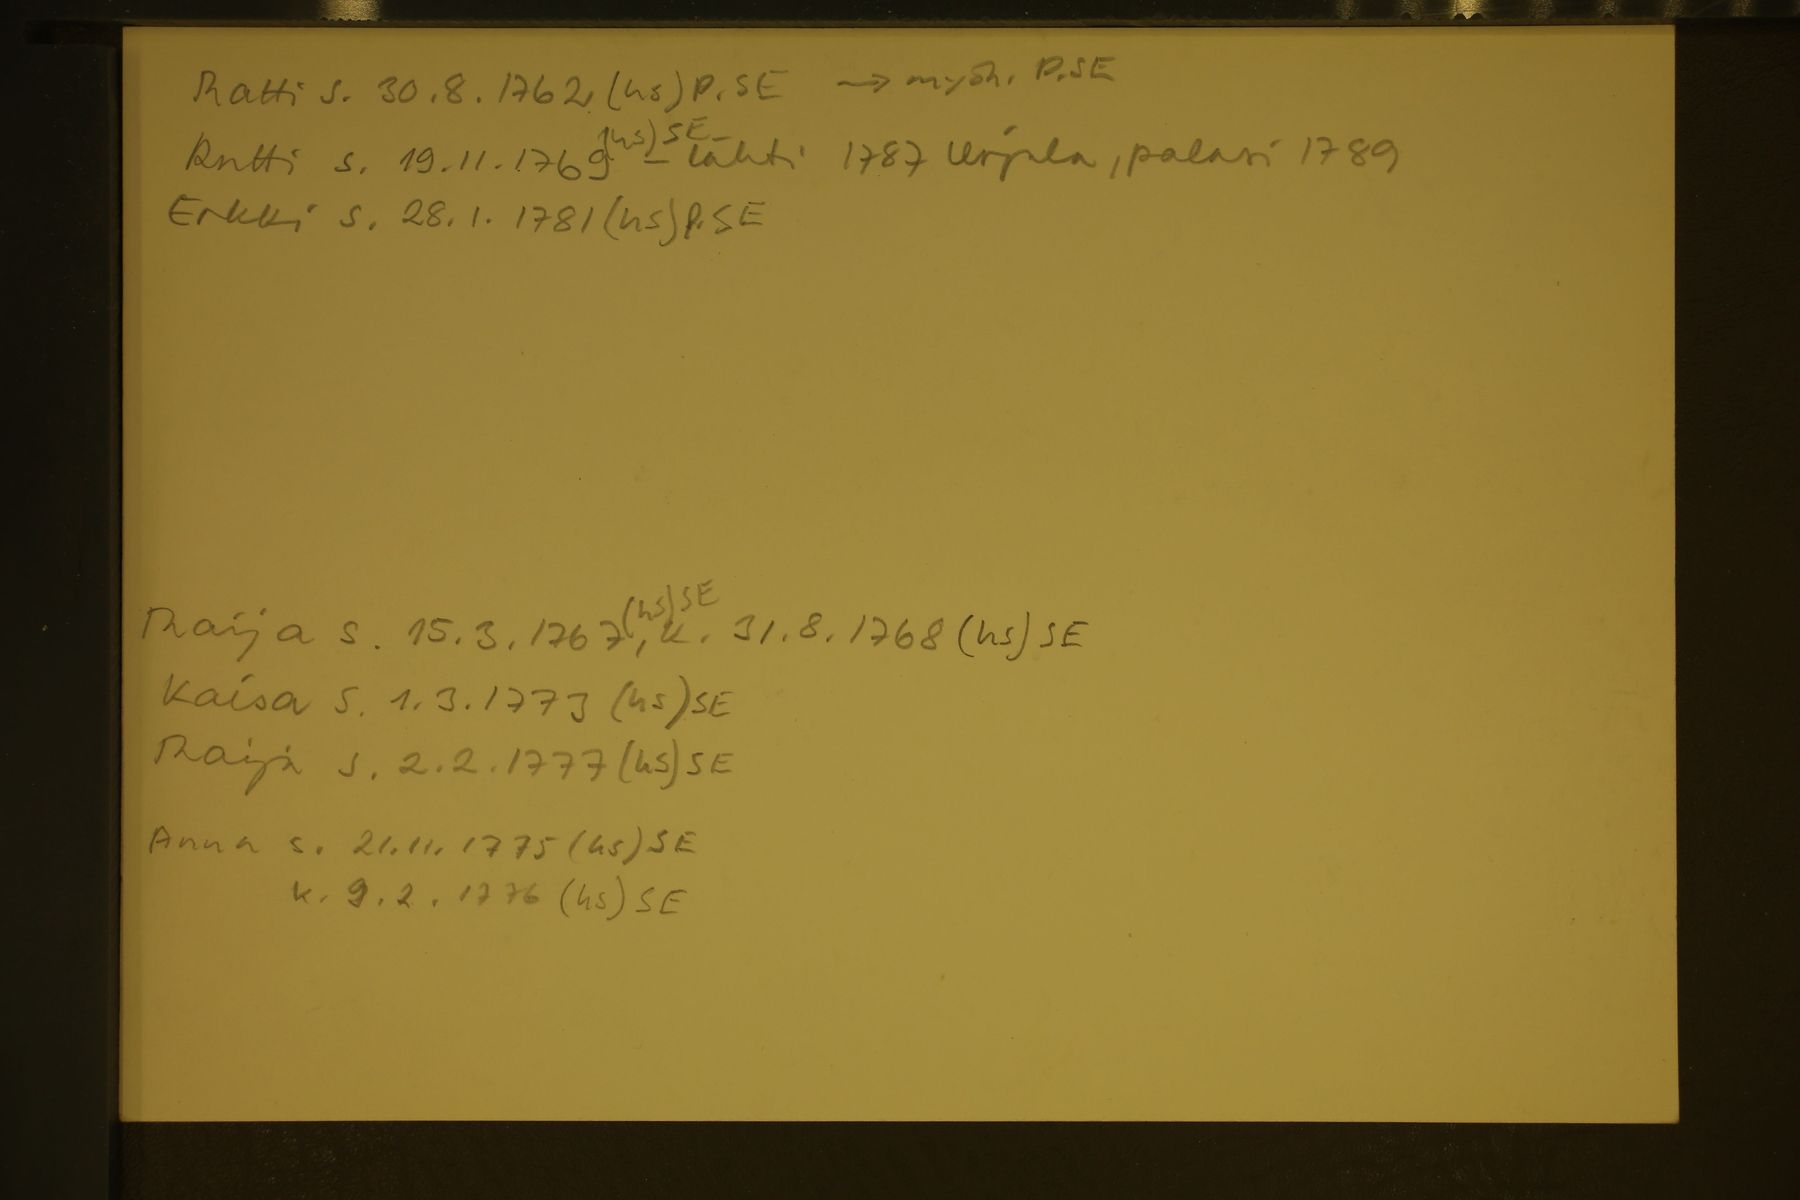 Matti s. 30.8.1762 (hs) P.SE → myöh. P.SE
Antti s. 19.11.1769 (hs) SE – lähti 1787 Urjala, palasi 1789
Erkki s. 28.1.1781 (hs) P.SE
Maija s. 15.3.1767 (hs) SE, k. 31.8.1768 (hs) SE
Kaisa s. 1.3.1773 (hs) SE
Maija s. 2.2.1777 (hs) SE
Anna s. 21.11.1775 (hs) SE
k. 9.2.1776 (hs) SE